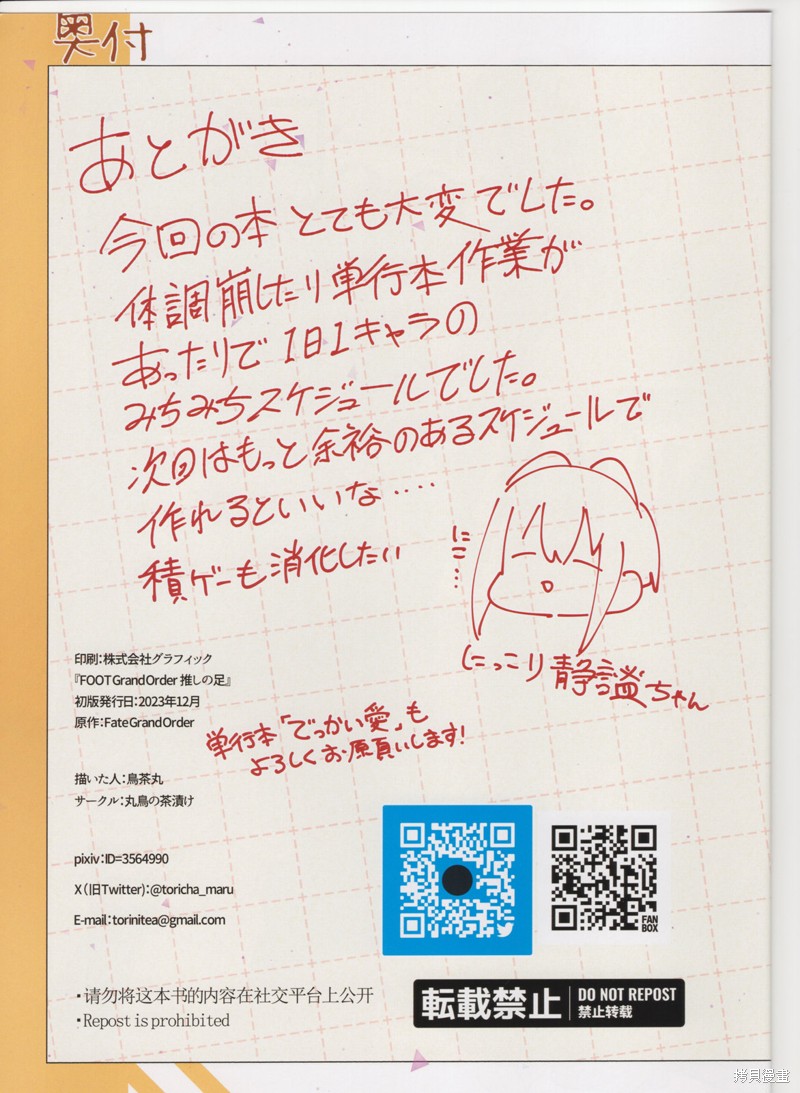 奥付
あとがき
今回の本 とても大変でした。
体調崩したり単行本作業が
あったりで 1日1キャラの
みちみちスケジュールでした。
次回はもっと余裕のあるスケジュールで
作れるといいな‥‥
積ゲーも消化したい
にこ…
にっこり静謐ちゃん
印刷:株式会社グラフィック
『FOOT Grand Order 推しの足』
初版発行日:2023年12月
原作:Fate Grand Order
単行本「でっかい愛」も
よろしくお願いします!
描いた人:鳥茶丸
サークル:丸鳥の茶漬け
pixiv:ID=3564990
X(旧Twitter):@toricha_maru
E-mail:torinitea@gmail.com
FAN
BOX
・请勿将这本书的内容在社交平台上公开
・Repost is prohibited
転載禁止
DO NOT REPOST
禁止转载
拷貝漫畫